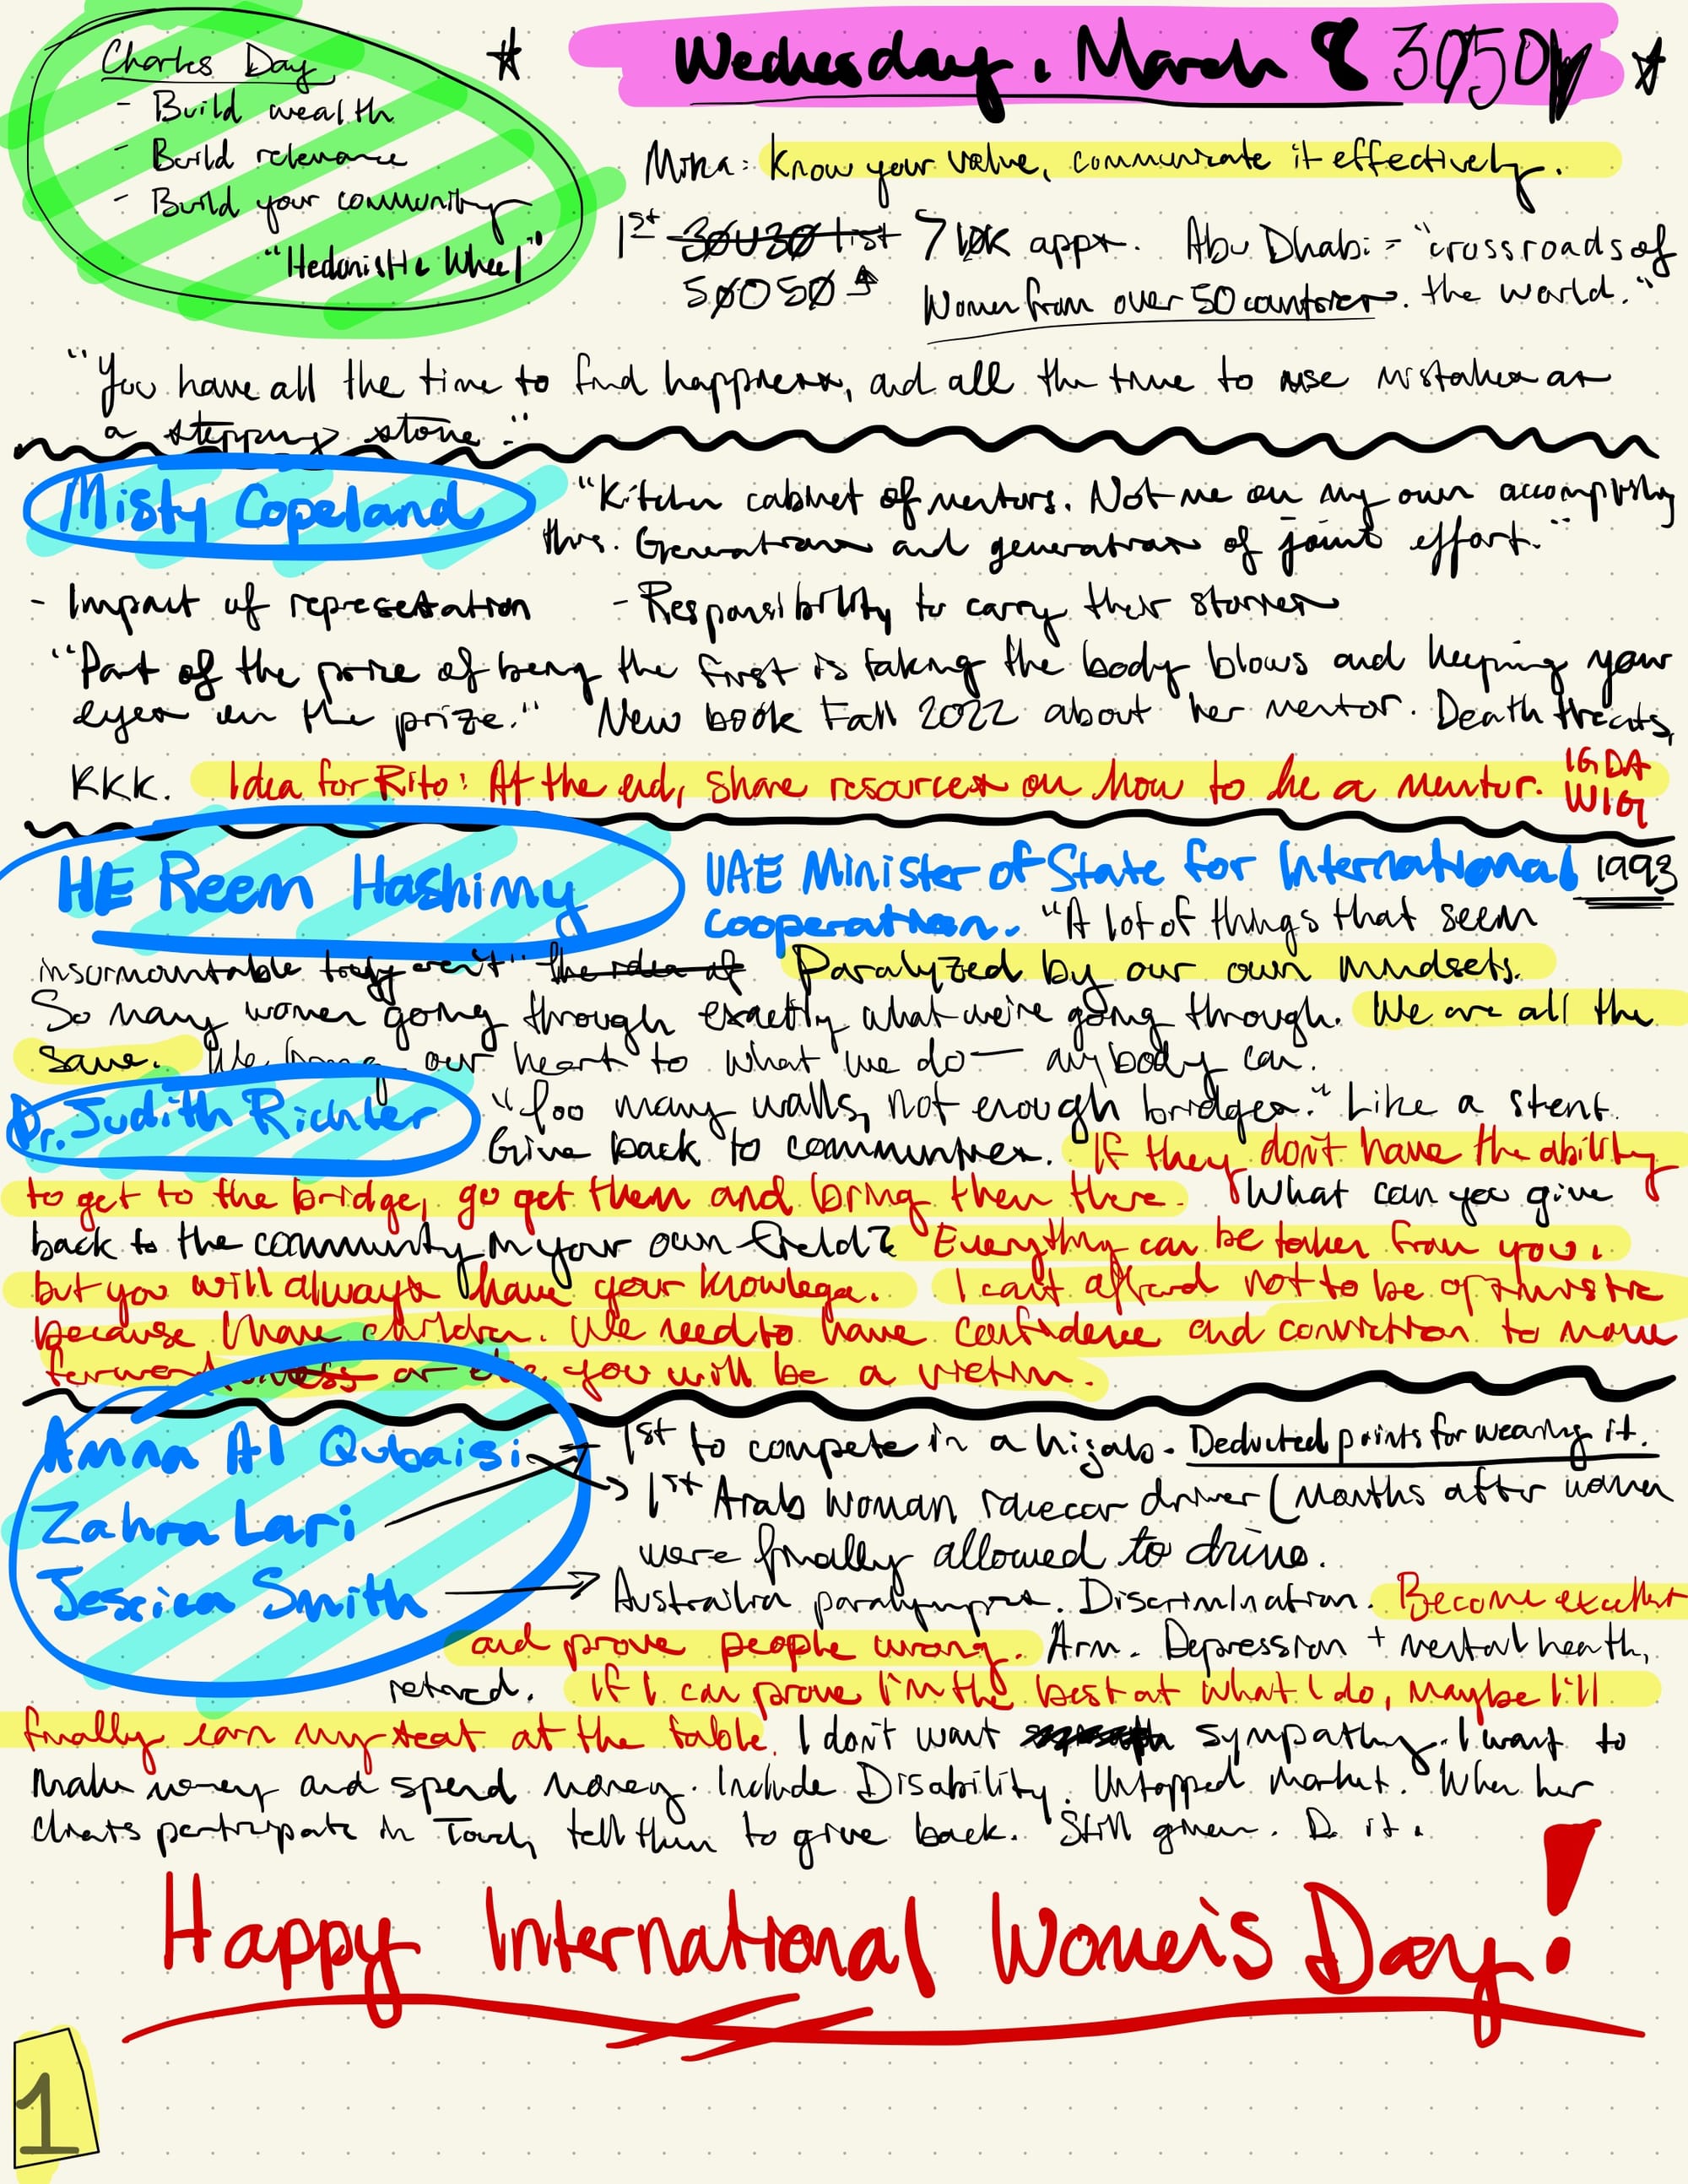 Charles Day
- Build wealth
- Build relevance
- Build your community
"Hedonistic Wheel"
Wednesday, March 8 3050
Mika: Know your value, communicate it effectively.
1st 30U30 list 7 10K appx. Abu Dhabi = "crossroads of
50O50 Women from over 50 countries. the world."
"You have all the time to find happiness, and all the time to use mistakes as
a stepping stone."
Misty Copeland
"Kitchen cabinet of mentors. Not me on my own accomplishing
this. Generations and generations of joint effort."
- Impact of representation - Responsibility to carry their stories
"Part of the price of being the first is taking the body blows and keeping your
eyes on the prize." New book Fall 2022 about her mentor. Death threats,
KKK. Idea for Rito: At the end, share resources on how to be a mentor. IGDA
WIG
HE Reem Hashimy
UAE Minister of State for International 1993
Cooperation. "A lot of things that seem
insurmountable truly aren't" the idea of Paralyzed by our own mindsets.
So many women going through exactly what we're going through. We are all the
same. We bring our heart to what we do — anybody can.
Dr. Judith Richter
"Too many walls, not enough bridges." Like a stent.
Give back to communities. If they don't have the ability
to get to the bridge, go get them and bring them there. What can you give
back to the community in your own field? Everything can be taken from you,
but you will always have your knowlege. I can't afford not to be optimistic
because I have children. We need to have confidence and conviction to move
forward or else you will be a victim.
Amna Al Qubaisi
1st to compete in a hijab. Deducted points for wearing it.
Zahra Lari
1st Arab woman racecar driver (months after women
were finally allowed to drive.
Jessica Smith
Australia paralympics. Discrimination. Become excellent
and prove people wrong. Arm. Depression + mental health,
retired. If I can prove I'm the best at what I do, maybe I'll
finally earn my seat at the table. I don't want sympathy. I want to
make money and spend money. Include Disability. Untapped market. When her
clients participate in Touch, tell them to give back. Still given. Do it.
Happy International Women's Day!
1